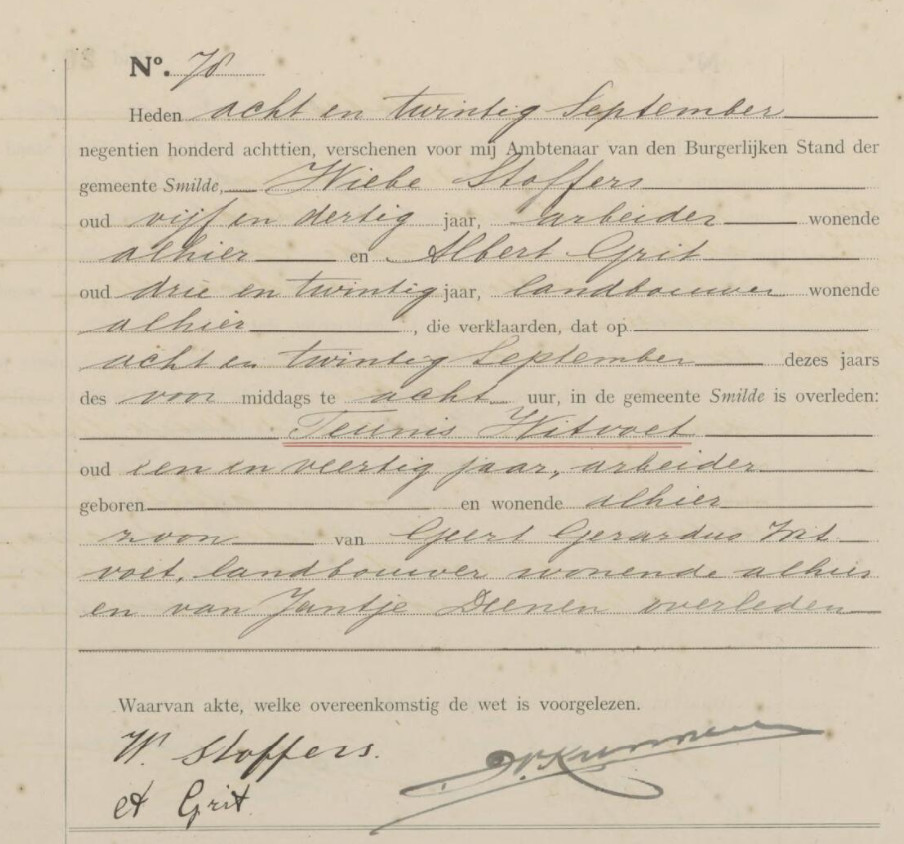 Nº. 78
Heden acht en twintig September
negentien honderd achttien, verschenen voor mij Ambtenaar van den Burgerlijken Stand der
gemeente Smilde, Wiebe Stoffers
oud vijf en dertig jaar, arbeider wonende
alhier en Albert Grit
oud drie en twintig jaar, landbouwer wonende
alhier, die verklaarden, dat op
acht en twintig September dezes jaars
des voor middags te acht uur, in de gemeente Smilde is overleden:
Teunis Witvoet
oud een en veertig jaar, arbeider
geboren en wonende alhier
zoon van Geert Gerardus Wit
voet, landbouwer wonende alhier
en van Jantje Deenen overleden
Waarvan akte, welke overeenkomstig de wet is voorgelezen.
W. Stoffers.
A Grit